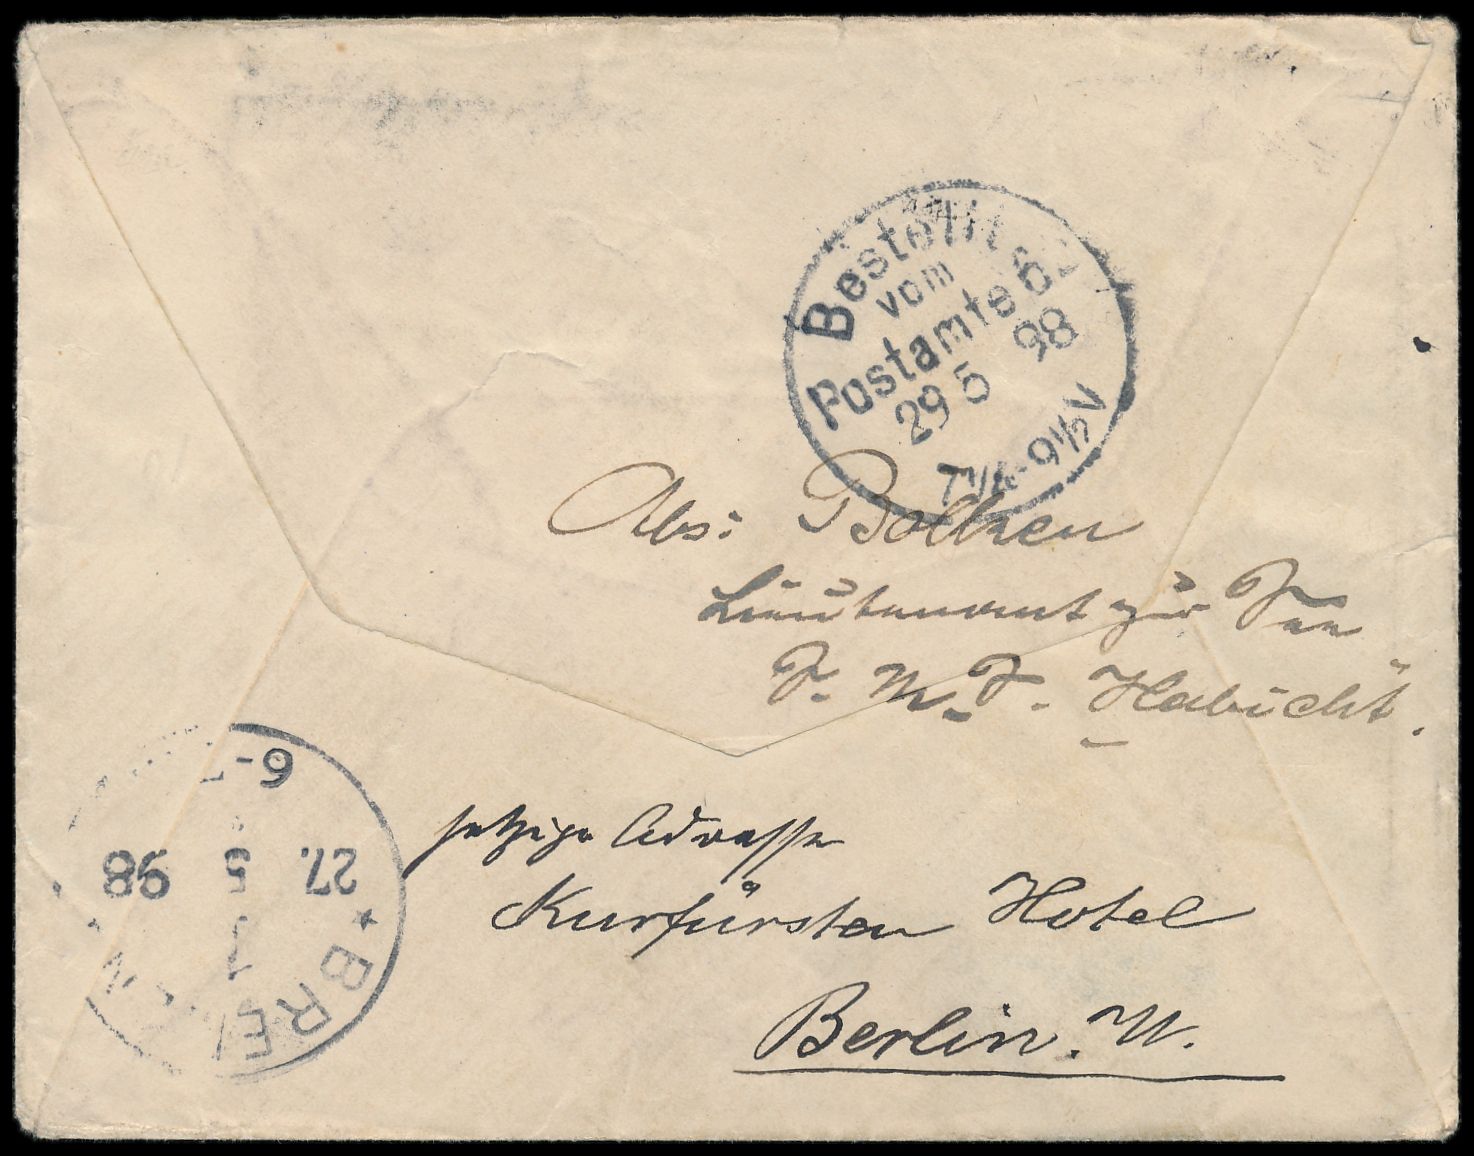 Bestellt
vom
Postamte 62
29 5 98
7¼-9½V
Abs: Bollzen
Lieutenant zur See
S. M. S. Habicht.
jetzige Adresse
Kurfürsten Hotel
Berlin. W.
* BREMEN
1
27. 5 98
6-7